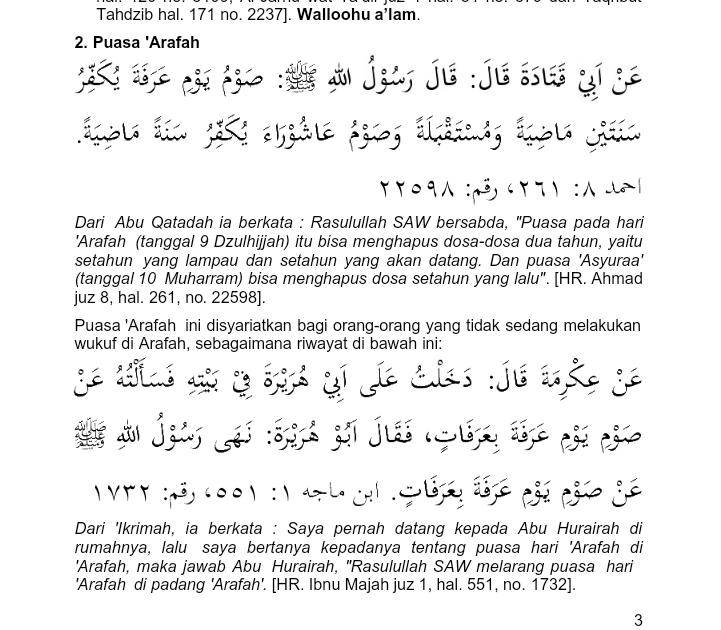 Tahdzib hal. 171 no. 2237]. Walloohu a'lam.
2. Puasa 'Arafah
عَنْ اَبِيْ قَتَادَةَ قَالَ: قَالَ رَسُوْلُ اللهِ ﷺ: صَوْمُ يَوْمِ عَرَفَةَ يُكَفِّرُ
سَنَتَيْنِ مَاضِيَةً وَمُسْتَقْبَلَةً وَصَوْمُ عَاشُوْرَاءَ يُكَفِّرُ سَنَةً مَاضِيَةً.
احمد ٨: ٢٦١، رقم: ٢٢٥٩٨
Dari Abu Qatadah ia berkata : Rasulullah SAW bersabda, "Puasa pada hari
'Arafah (tanggal 9 Dzulhijjah) itu bisa menghapus dosa-dosa dua tahun, yaitu
setahun yang lampau dan setahun yang akan datang. Dan puasa 'Asyuraa'
(tanggal 10 Muharram) bisa menghapus dosa setahun yang lalu". [HR. Ahmad
juz 8, hal. 261, no. 22598].
Puasa 'Arafah ini disyariatkan bagi orang-orang yang tidak sedang melakukan
wukuf di Arafah, sebagaimana riwayat di bawah ini:
عَنْ عِكْرِمَةَ قَالَ: دَخَلْتُ عَلَى اَبِيْ هُرَيْرَةَ فِيْ بَيْتِهِ فَسَأَلْتُهُ عَنْ
صَوْمِ يَوْمِ عَرَفَةَ بِعَرَفَاتٍ، فَقَالَ اَبُوْ هُرَيْرَةَ: نَهَى رَسُوْلُ اللهِ ﷺ
عَنْ صَوْمِ يَوْمِ عَرَفَةَ بِعَرَفَاتٍ. ابن ماجه ١: ٥٥١، رقم: ١٧٣٢
Dari 'Ikrimah, ia berkata : Saya pernah datang kepada Abu Hurairah di
rumahnya, lalu saya bertanya kepadanya tentang puasa hari 'Arafah di
'Arafah, maka jawab Abu Hurairah, "Rasulullah SAW melarang puasa hari
'Arafah di padang 'Arafah'. [HR. Ibnu Majah juz 1, hal. 551, no. 1732].
3